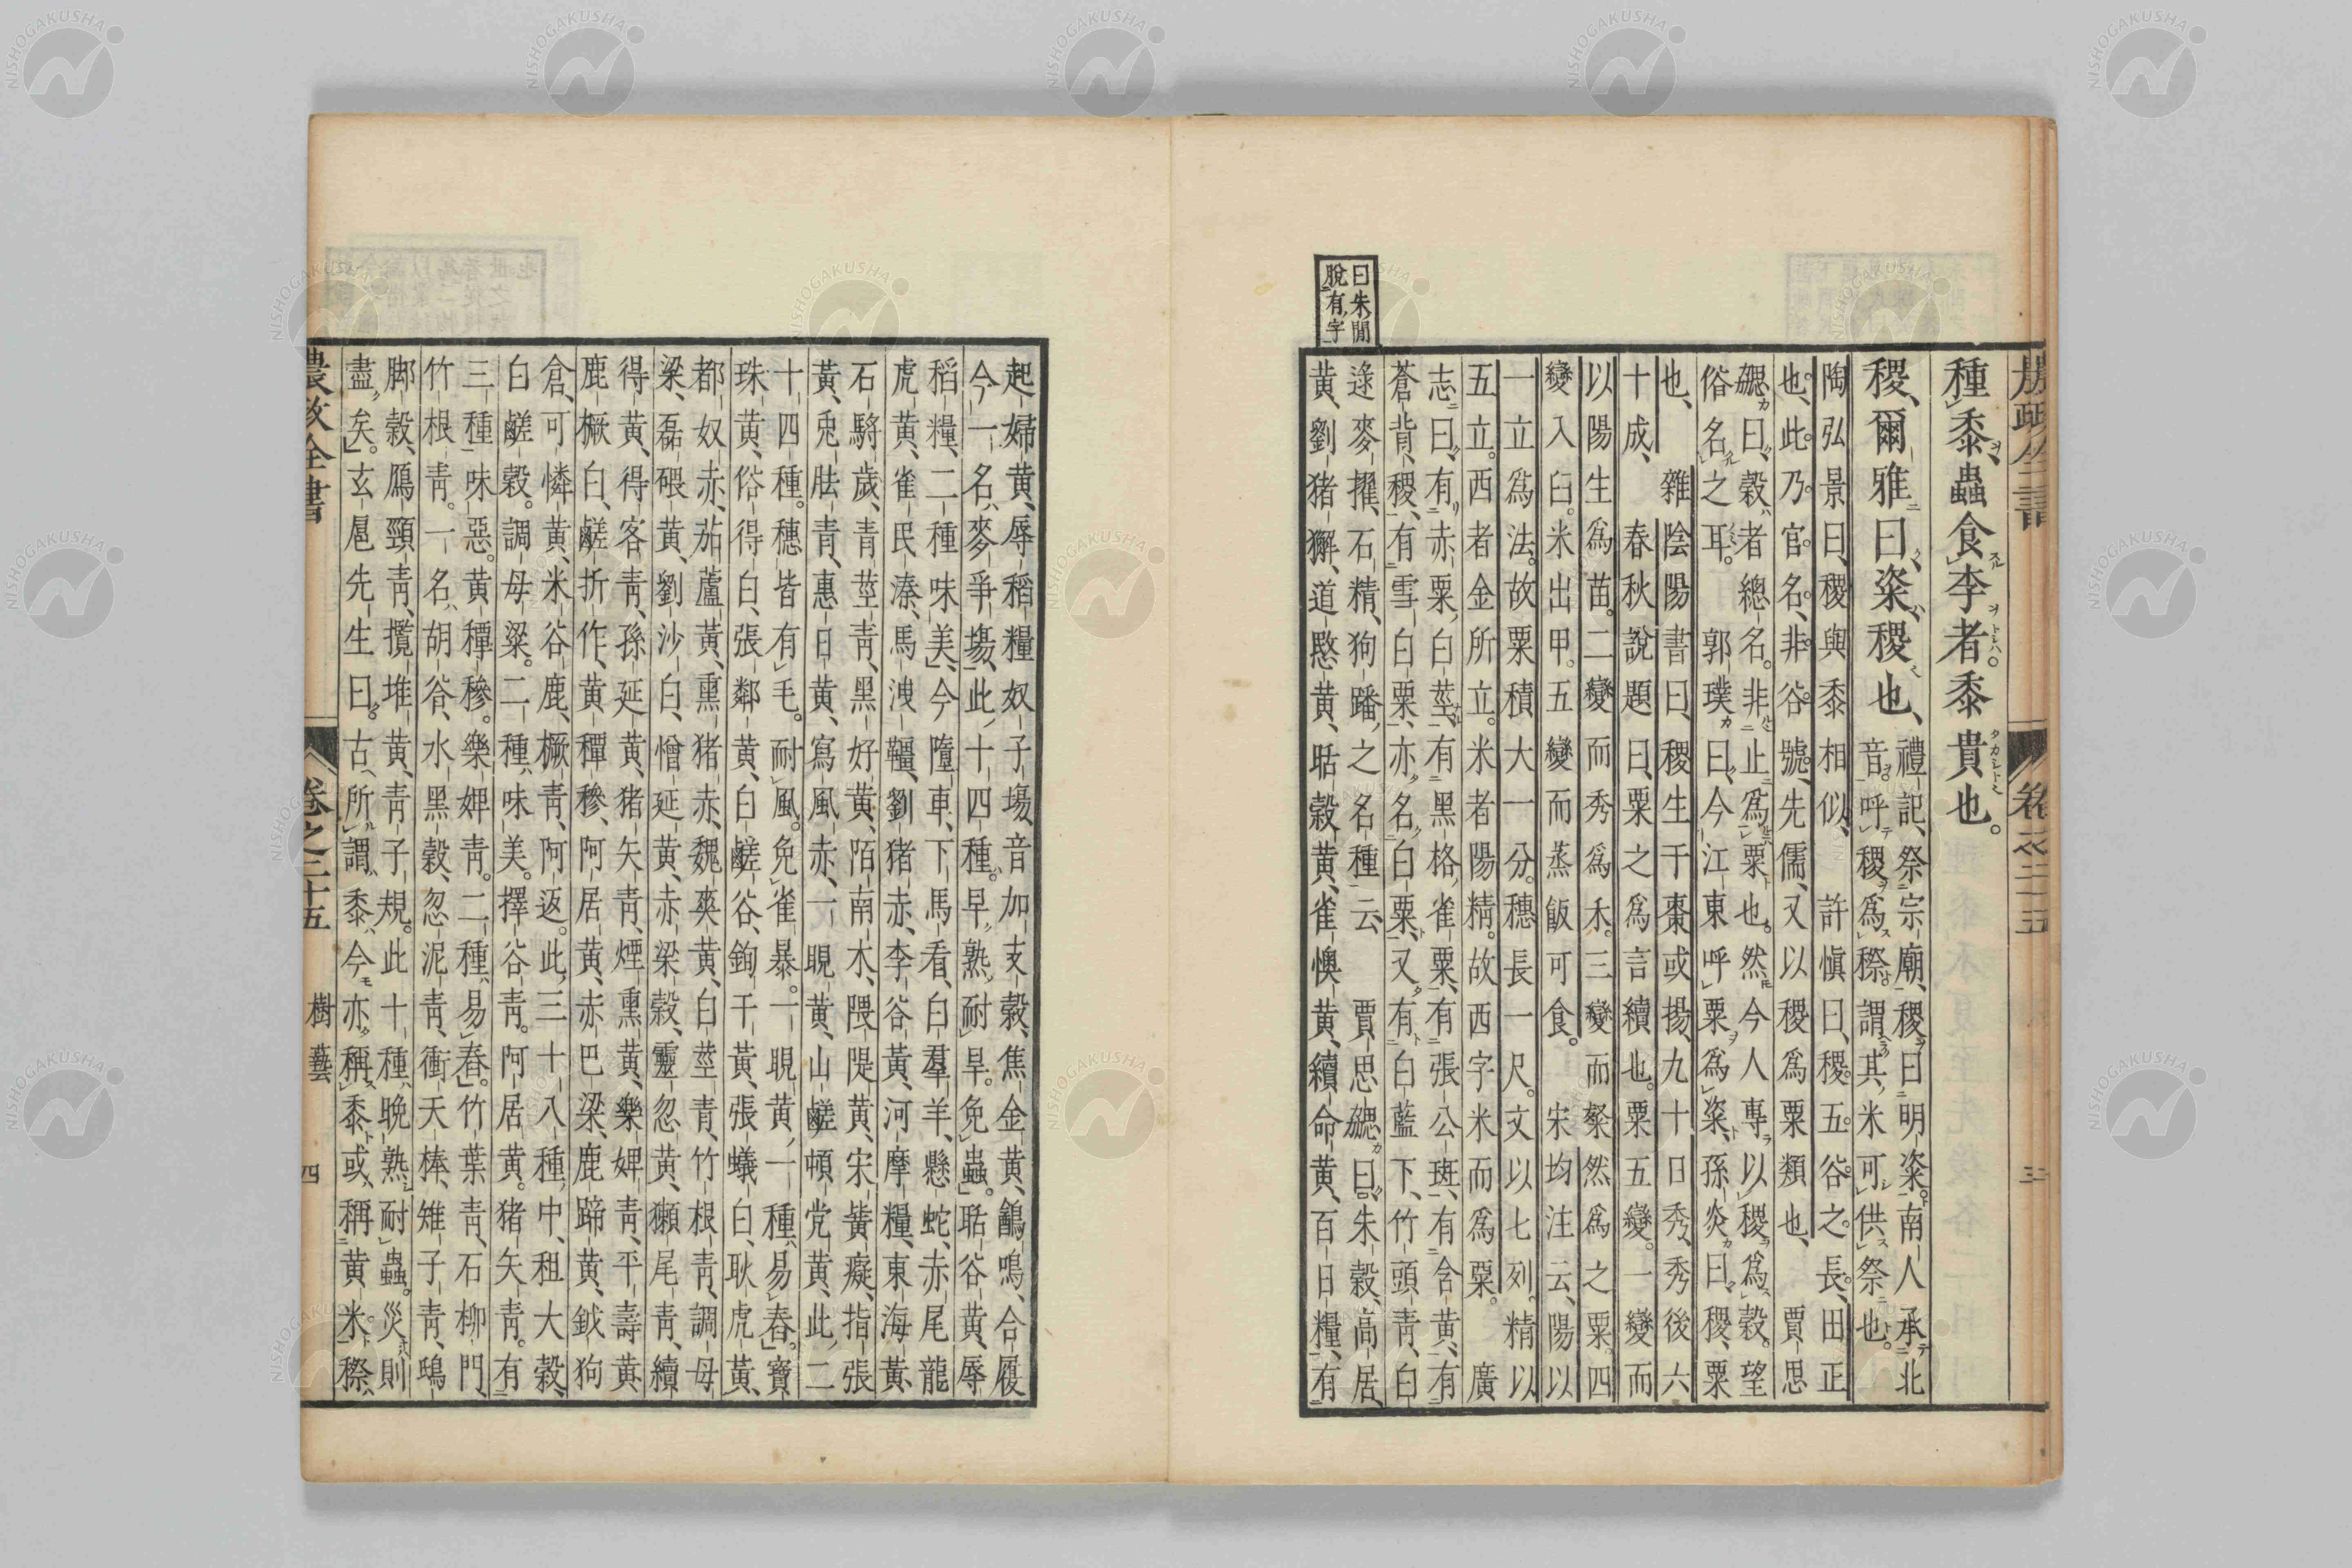 農政全書 卷之二十五 三
種黍、蟲食李者。黍貴也。
稷、爾雅曰、粢、稷也、
禮記、祭宗廟、稷曰明粢。南人承北
音。呼稷爲穄。謂其米可供祭也。
陶弘景曰、稷與黍相似、 許愼曰、稷。五谷之長。田正
也。此乃官名、非谷號。先儒、又以稷爲粟類也、 賈思
勰曰、穀者總名。非止爲粟也。然今人專以稷爲穀。望
俗名之耳。 郭璞曰、今江東呼粟爲粢、孫炎曰、稷、粟
也、 雜陰陽書曰、稷生于棗或揚、九十日秀、秀後六
十成、 春秋說題曰、粟之爲言續也。粟五變。一變而
以陽生爲苗。二變而秀爲禾。三變而粲然爲之粟。四
變入臼。米出甲。五變而蒸飯可食。 宋均注云、陽以
一立爲法。故粟積大一分。穗長一尺。文以七列。精以
五立。西者金所立。米者陽精。故西字米而爲粟。 廣
志曰、有赤粟、白莖、有黑格、雀粟、有張公斑、有含黃、有
蒼背稷、有雪白粟、亦名白粟、又有白藍下、竹頭靑、白
逯麥擢、石精、狗蹯、之名種云 賈思勰曰、朱穀、高居
黃、劉猪獬、道愍黃、聒穀黃、雀懊黃、續命黃、百日糧、有
曰朱間
脫有字
起婦黃、辱稻糧奴子塲、音加支穀、焦金黃、鷂鳴、合履
今一名、麥爭塲、此十四種。早熟、耐旱。免蟲。聒谷黃、辱
稻糧、二種味美、今隨車、下馬看、白羣羊、懸蛇、赤尾龍
虎黃、雀民溙、馬洩韁、劉猪赤、李谷黃、河摩糧、東海黃
石䮤歲、青莖靑、黑好黃、陌南木、隈隄黃、宋冀癡、指張
黃、兎䏜青、惠日黃、寫風赤、一晛黃、山鹺、頓党黃、此二
十四種。穗皆有毛。耐風。免雀暴。一晛黃、一種、易舂。寶
珠黃、俗得白、張鄰黃、白鹺谷、鉤干黃、張蟻白、耿虎黃、
都奴赤、茄蘆黃、熏猪赤、魏爽黃、白莖靑、竹根靑、調母
粱、磊碨黃、劉沙白、憎延黃、赤粱穀、靈忽黃、獺尾靑、續
得黃、得客靑、孫延黃、猪矢靑、煙熏黃、樂婢靑、平壽黃
鹿橛白、鹺折作、黃䅯穇、阿居黃、赤巴粱、鹿蹄黃、鉞狗
倉、可憐黃、米谷鹿、橛靑、阿返。此三十八種、中、租大穀、
白鹺穀。調母粱。二種、味美。擇谷靑。阿居黃。猪矢靑。有
三種味惡。黃䅯穇。樂婢靑。二種、易舂。竹葉靑、石柳門、
竹根靑。一名、胡谷、水黑穀、忽泥靑、衝天棒、雉子靑、鴟
脚穀、鴈頸靑、攬堆黃、靑子規。此十種、晚熟、耐蟲。災則
盡矣。玄扈先生曰。古所謂黍、今亦稱黍、或稱黃米、穄、
農政全書 卷之二十五 樹藝 四